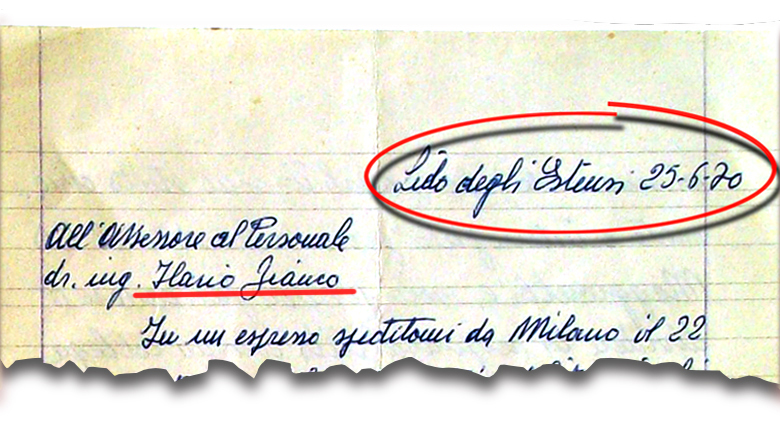 Lido degli Estensi 25-6-70
All'Assessore al Personale
dr. ing. Ilario Bianco
In un espresso speditomi da Milano il 22